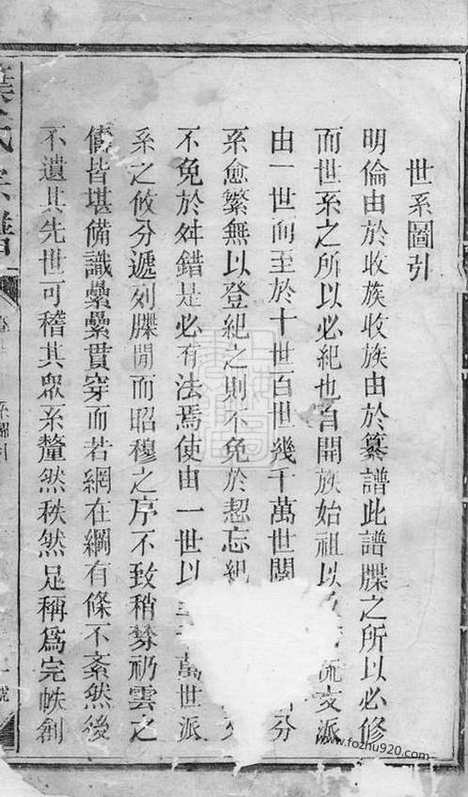 世系圖引
明倫由於收族收族由於纂譜此譜牒之所以必修
而世系之所以必紀也自開族始祖以 流支派
由一世而至於十世百世幾千萬世 分
系愈繁無以登紀之則不免於恝忘紀
不免於舛錯是必有法焉使由一世以至 萬世派
系之攸分遞列牒閒而昭穆之序不致稍棼礽雲之
儔皆堪備識纍纍貫穿而若網在綱有條不紊然後
不遺其先世可稽其眾系釐然秩然足稱為完帙創
氏宗譜
www.fozhu920.com